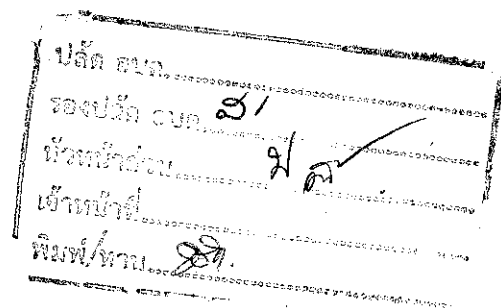 ปลัด อบต.
รองปลัด อบต.
หัวหน้าส่วน
เจ้าหน้าที่
พิมพ์/ทาน